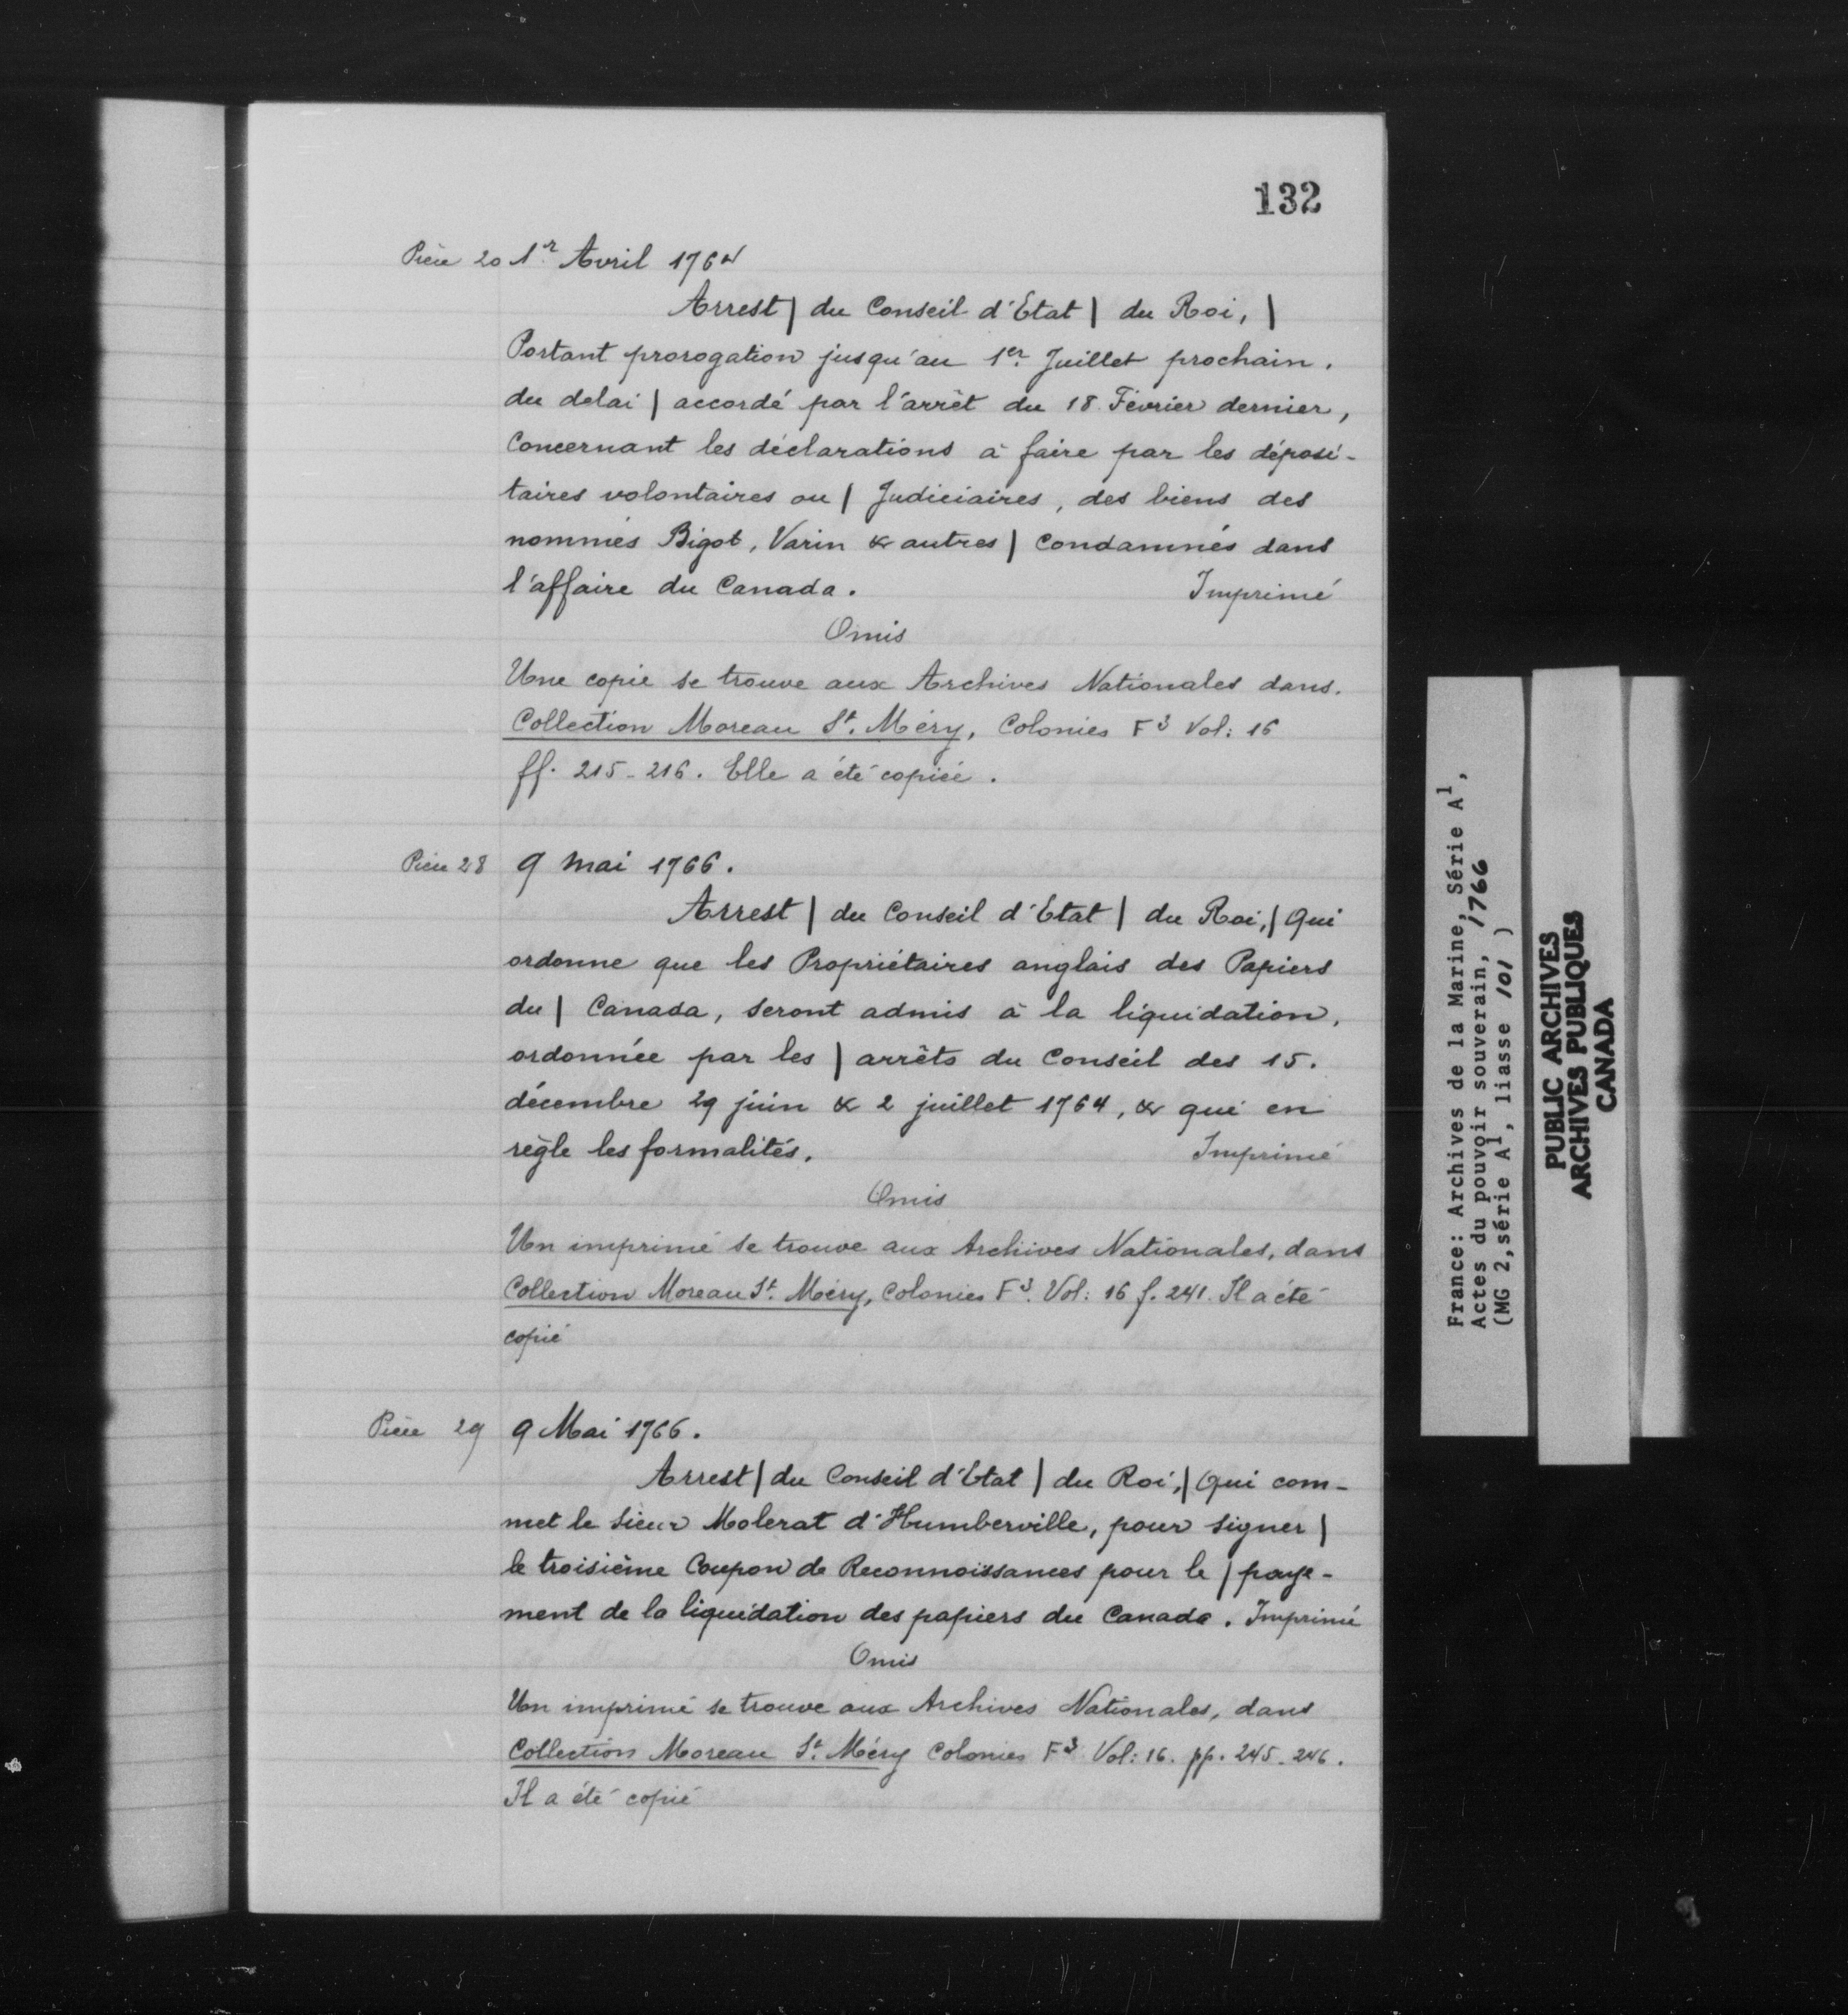 132
Pièce 20 1er Avril 1764
Arrest | du Conseil d'Etat | du Roi, |
Portant prorogation jusqu'au 1er Juillet prochain.
du delai | accordé par l'arrêt du 18 Février dernier,
Concernant les déclarations à faire par les déposi-
taires volontaires ou | Judiciaires, des biens des
nommés Bigot, Varin & autres | Condamnés dans
l'affaire du Canada. Imprimé
Omis
Une copie se trouve aux Archives Nationales dans.
Collection Moreau St. Méry, Colonies F3 Vol: 16
ff. 215-216. Elle a été copiée.
Pièce 28 9 mai 1766.
Arrest | du Conseil d'Etat | du Roi, | Qui
ordonne que les Propriétaires anglais des Papiers
du | Canada, seront admis à la liquidation,
ordonnée par les | arrêts du Conseil des 15.
décembre 29 juin & 2 juillet 1764, & qui en
règle les formalités. Imprimé
Omis
Un imprimé se trouve aux Archives Nationales, dans
Collection Moreau St. Méry, Colonies F3. Vol: 16 f. 241. Il a été
copié
Pièce 29 9 Mai 1766.
Arrest | du Conseil d'Etat | du Roi, | Qui com-
met le Sieur Molerat d'Humberville, pour signer |
le troisième Coupon de Reconnoissances pour le | paye-
ment de la liquidation des papiers du Canada. Imprimé
Omis
Un imprimé se trouve aux Archives Nationales, dans
Collection Moreau St. Méry Colonies F3 Vol: 16. pp. 245-246.
Il a été copié
France: Archives de la Marine, Série A1,
Actes du pouvoir souverain, 1766
(MG 2, série A1, liasse 101 )
PUBLIC ARCHIVES
ARCHIVES PUBLIQUES
CANADA